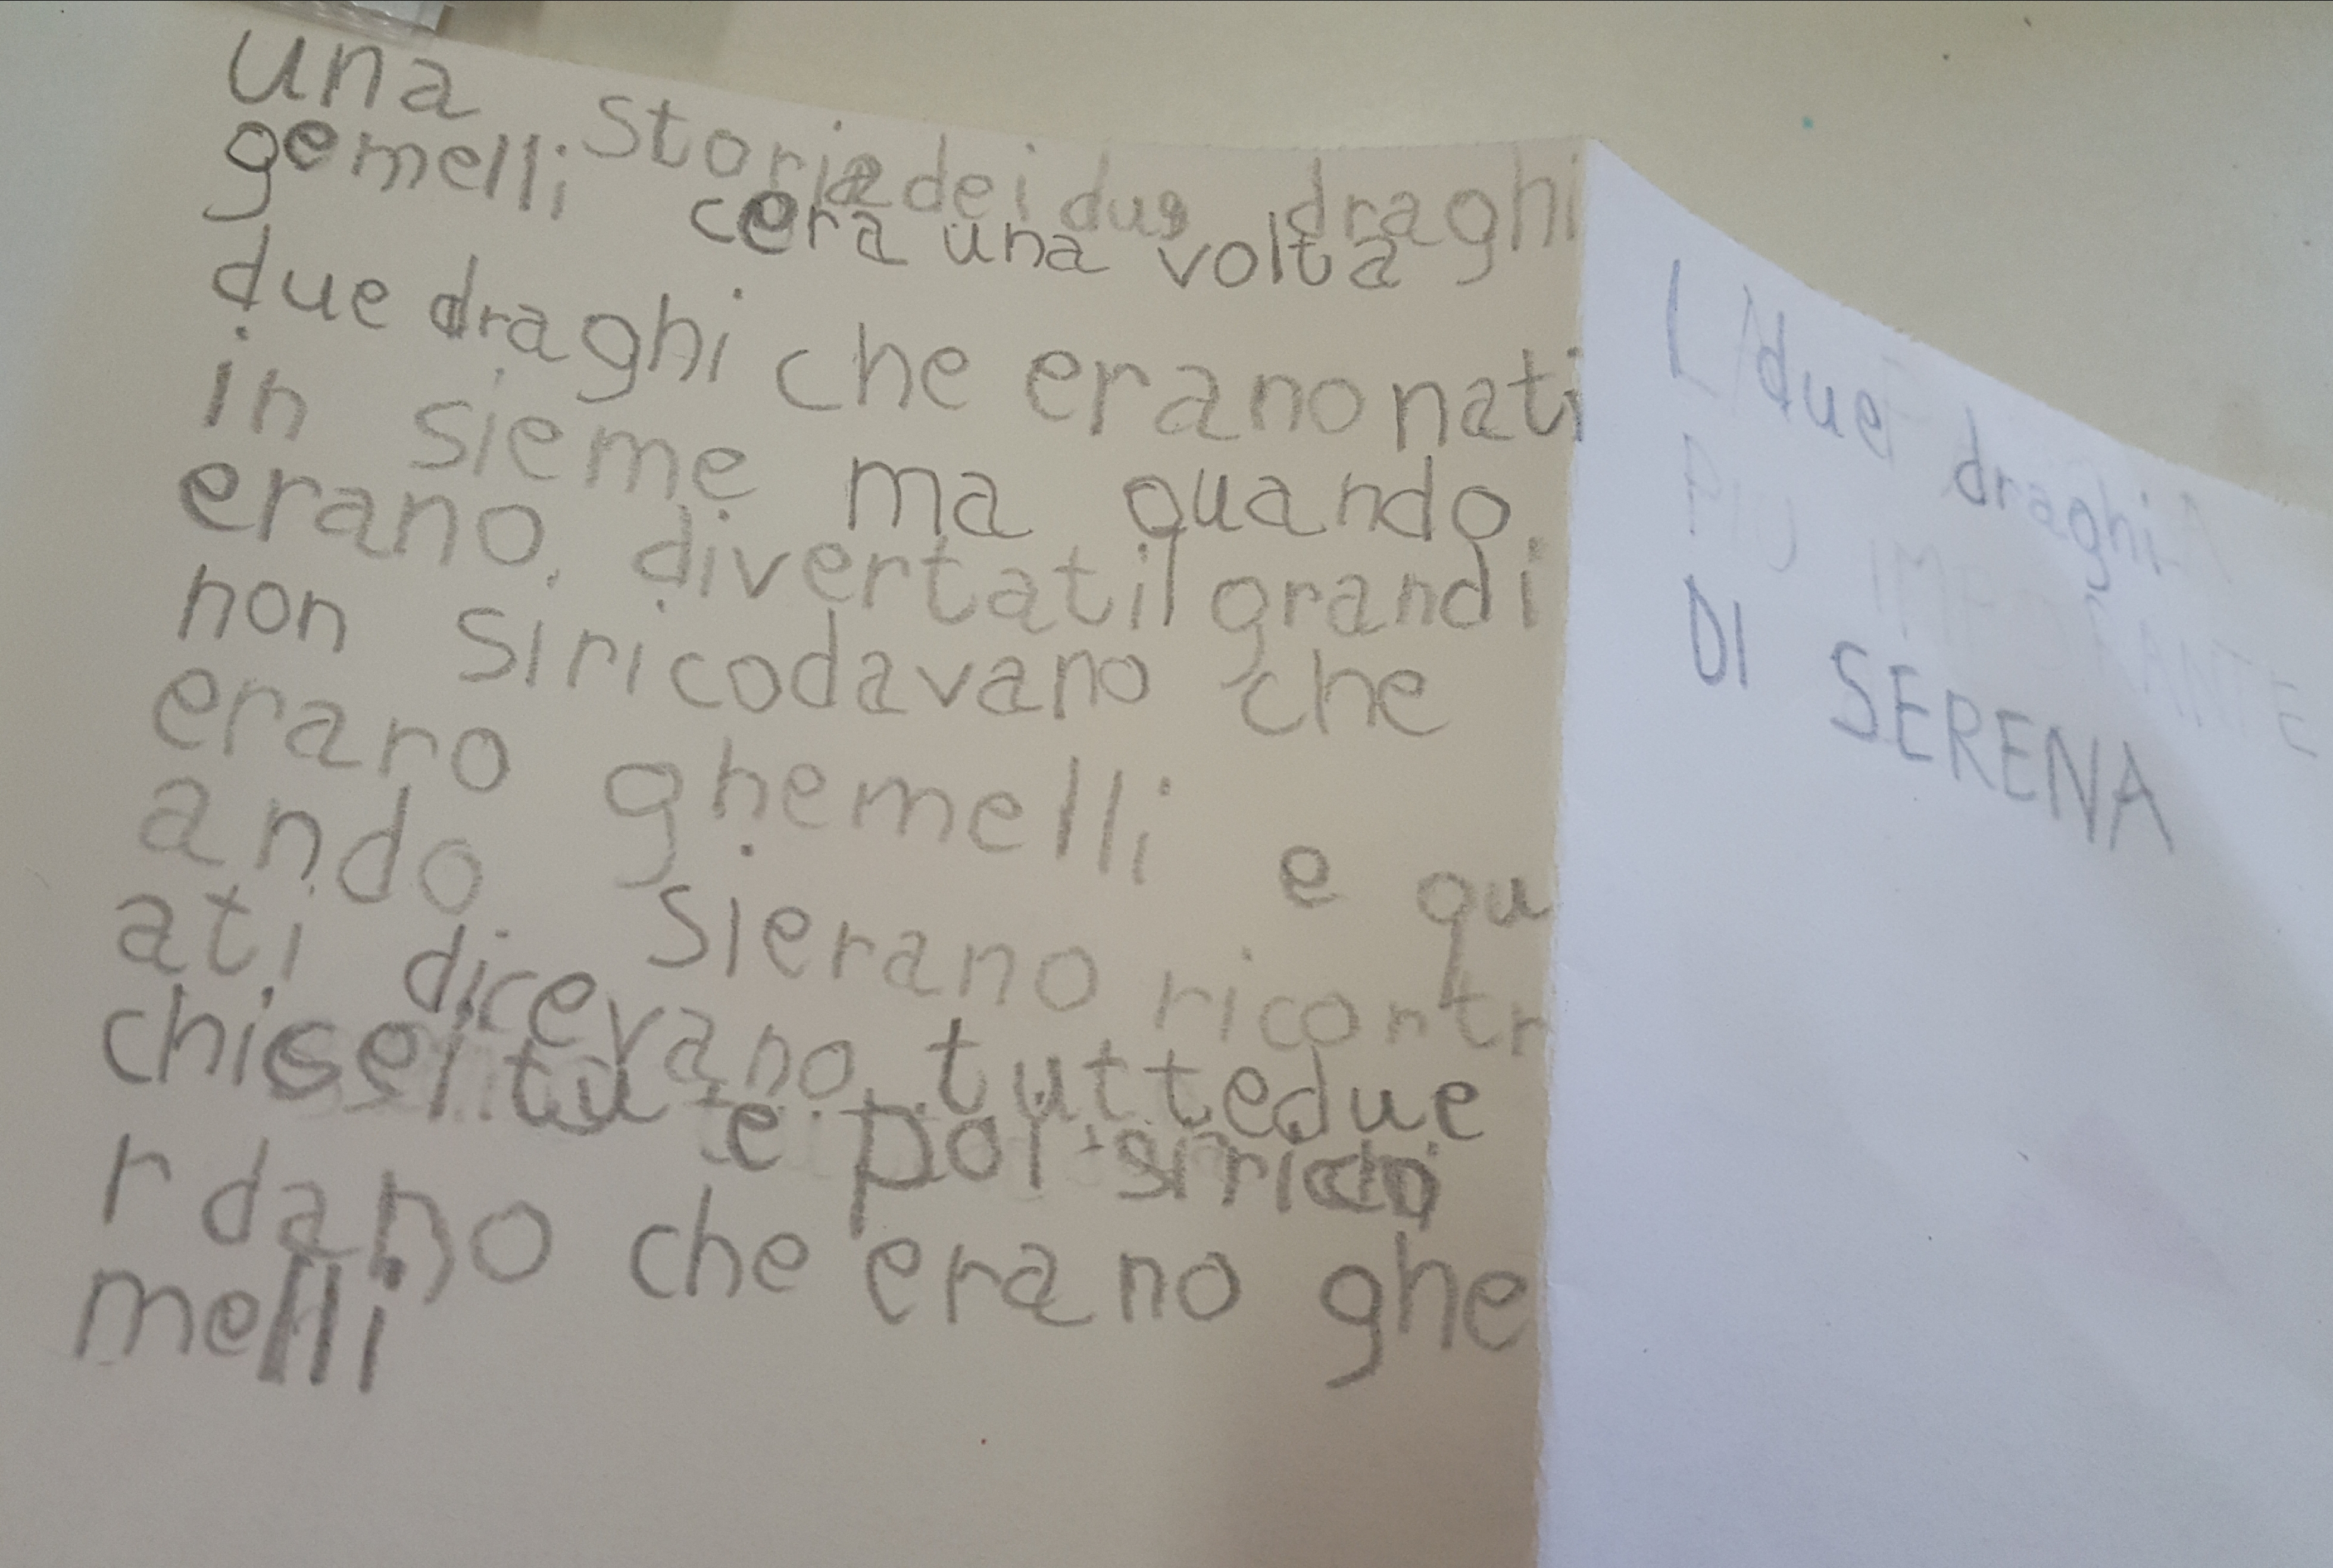 una storia dei due draghi
gemelli cera una volta
due draghi che erano nati
in sieme ma quando
erano divertati grandi
non si ricodavano che
eraro ghemelli e qu
ando sierano ricontr
ati dicevano tuttedue
chi sei tu e poi si rico
rdano che erano ghe
melli
I due draghi
DI SERENA